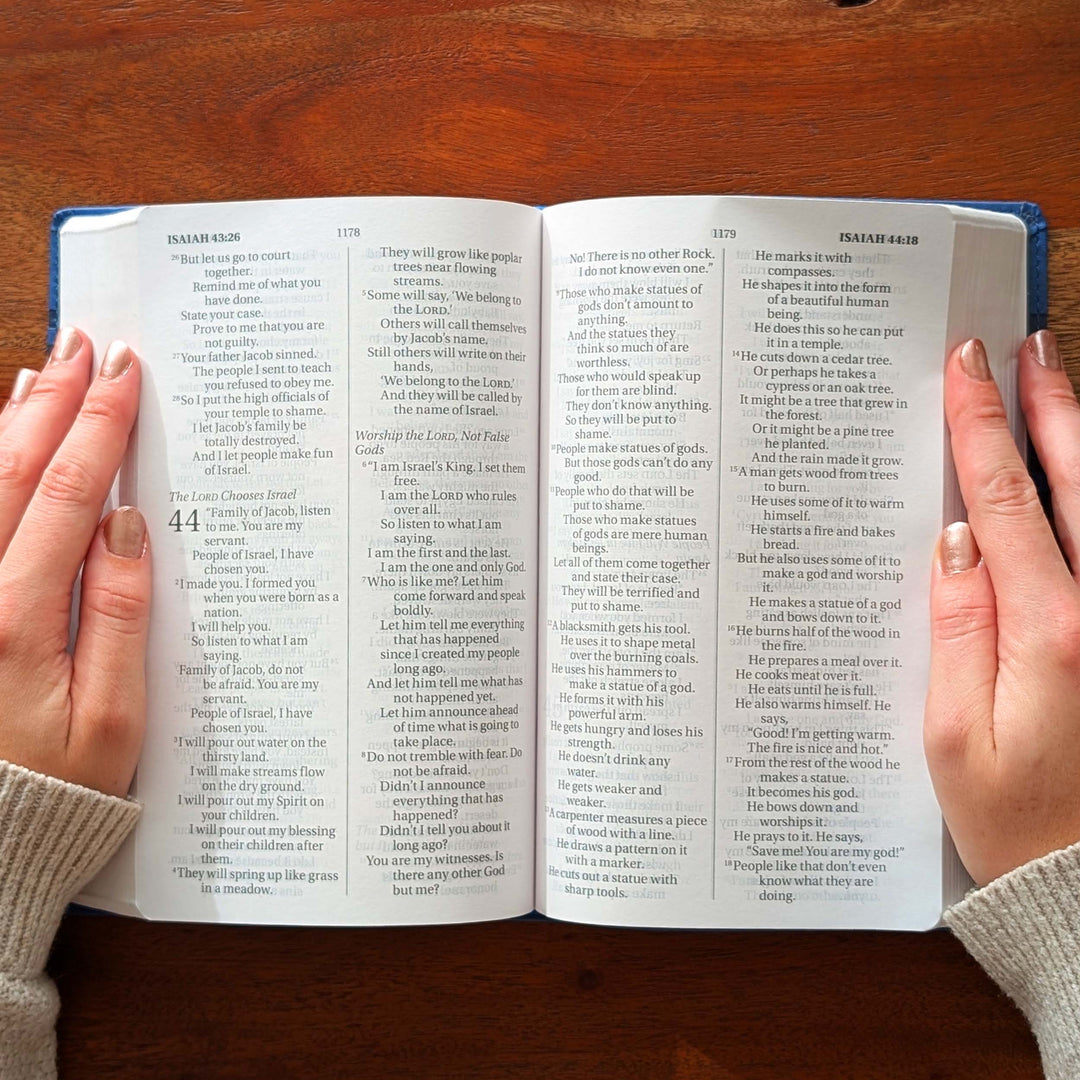 ISAIAH 43:26
1178
26But let us go to court
together.
Remind me of what you
have done.
State your case.
Prove to me that you are
not guilty.
27Your father Jacob sinned.
The people I sent to teach
you refused to obey me.
28So I put the high officials of
your temple to shame.
I let Jacob's family be
totally destroyed.
And I let people make fun
of Israel.
The LORD Chooses Israel
44 "Family of Jacob, listen
to me. You are my
servant.
People of Israel, I have
chosen you.
2I made you. I formed you
when you were born as a
nation.
I will help you.
So listen to what I am
saying.
Family of Jacob, do not
be afraid. You are my
servant.
People of Israel, I have
chosen you.
3I will pour out water on the
thirsty land.
I will make streams flow
on the dry ground.
I will pour out my Spirit on
your children.
I will pour out my blessing
on their children after
them.
4They will spring up like grass
in a meadow.
They will grow like poplar
trees near flowing
streams.
5Some will say, 'We belong to
the LORD.'
Others will call themselves
by Jacob's name.
Still others will write on their
hands,
'We belong to the LORD.'
And they will be called by
the name of Israel.
Worship the LORD, Not False
Gods
6"I am Israel's King. I set them
free.
I am the LORD who rules
over all.
So listen to what I am
saying.
I am the first and the last.
I am the one and only God.
7Who is like me? Let him
come forward and speak
boldly.
Let him tell me everything
that has happened
since I created my people
long ago.
And let him tell me what has
not happened yet.
Let him announce ahead
of time what is going to
take place.
8Do not tremble with fear. Do
not be afraid.
Didn't I announce
everything that has
happened?
Didn't I tell you about it
long ago?
You are my witnesses. Is
there any other God
but me?
1179
ISAIAH 44:18
No! There is no other Rock.
I do not know even one."
9Those who make statues of
gods don't amount to
anything.
And the statues they
think so much of are
worthless.
Those who would speak up
for them are blind.
They don't know anything.
So they will be put to
shame.
10People make statues of gods.
But those gods can't do any
good.
11People who do that will be
put to shame.
Those who make statues
of gods are mere human
beings.
Let all of them come together
and state their case.
They will be terrified and
put to shame.
12A blacksmith gets his tool.
He uses it to shape metal
over the burning coals.
He uses his hammers to
make a statue of a god.
He forms it with his
powerful arm.
He gets hungry and loses his
strength.
He doesn't drink any
water.
He gets weaker and
weaker.
13A carpenter measures a piece
of wood with a line.
He draws a pattern on it
with a marker.
He cuts out a statue with
sharp tools.
He marks it with
compasses.
He shapes it into the form
of a beautiful human
being.
He does this so he can put
it in a temple.
14He cuts down a cedar tree.
Or perhaps he takes a
cypress or an oak tree.
It might be a tree that grew in
the forest.
Or it might be a pine tree
he planted.
And the rain made it grow.
15A man gets wood from trees
to burn.
He uses some of it to warm
himself.
He starts a fire and bakes
bread.
But he also uses some of it to
make a god and worship
it.
He makes a statue of a god
and bows down to it.
16He burns half of the wood in
the fire.
He prepares a meal over it.
He cooks meat over it.
He eats until he is full.
He also warms himself. He
says,
"Good! I'm getting warm.
The fire is nice and hot."
17From the rest of the wood he
makes a statue.
It becomes his god.
He bows down and
worships it.
He prays to it. He says,
"Save me! You are my god!"
18People like that don't even
know what they are
doing.